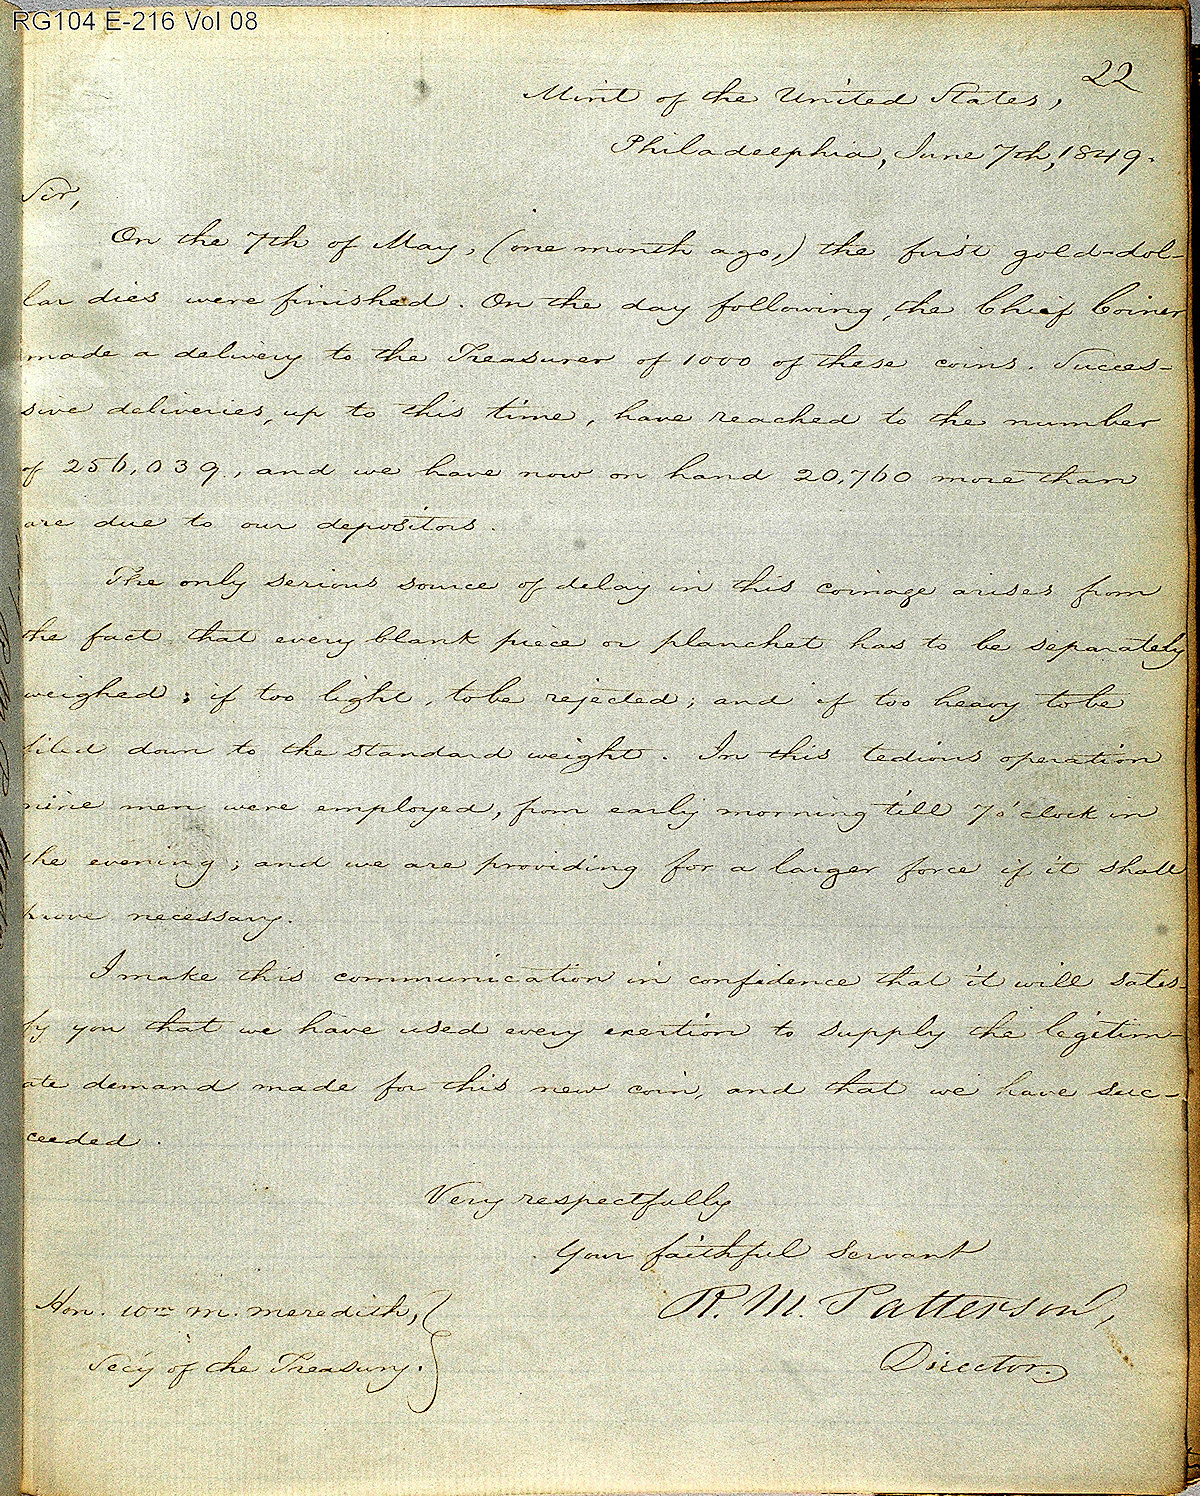 RG104 E-216 Vol 08
22
Mint of the United States,
Philadelphia, June 7th, 1849.
Sir,
On the 7th of May, (one month ago,) the first gold-dol-
lar dies were finished. On the day following, the Chief Coiner
made a delivery to the Treasurer of 1000 of these coins. Succes-
sive deliveries, up to this time, have reached to the number
of 256,039, and we have now on hand 20,760 more than
are due to our depositors.
The only serious source of delay in this coinage arises from
the fact that every blank piece or planchet has to be separately
weighed; if too light, to be rejected; and if too heavy to be
filed down to the standard weight. In this tedious operation
nine men were employed, from early morning 'till 7 o'clock in
the evening; and we are providing for a larger force if it shall
prove necessary.
I make this communication in confidence that it will satis-
fy you that we have used every exertion to supply the legitim-
ate demand made for this new coin, and that we have suc-
ceeded.
Very respectfully
Your faithful servant
R. M. Patterson,
Director.
Hon. Wm M. Meredith,
Sec'y of the Treasury.